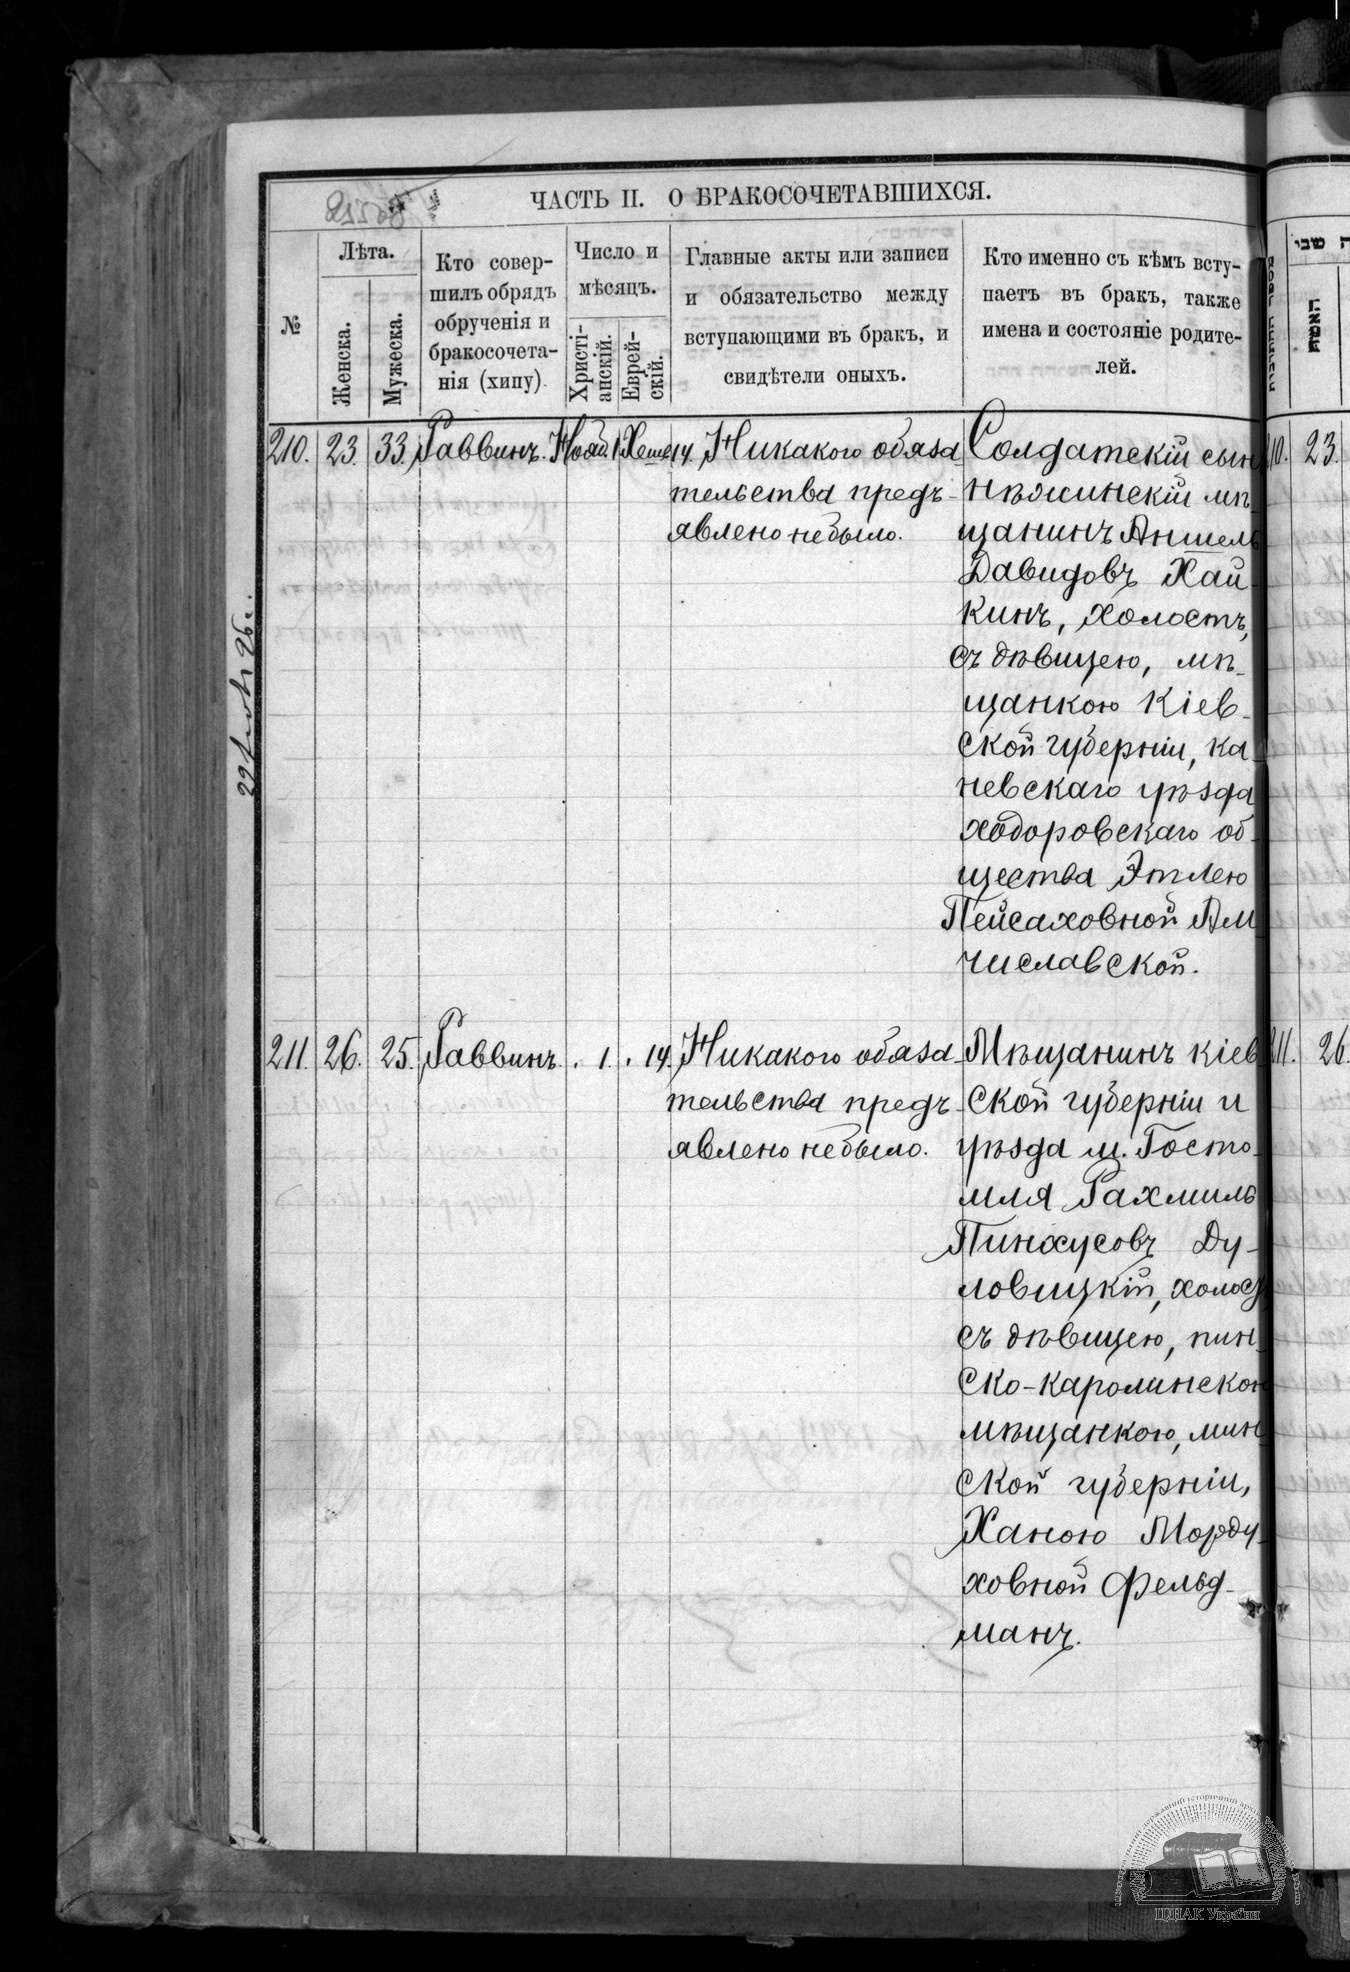 ЧАСТЬ II. О БРАКОСОЧЕТАВШИХСЯ.
№
Лѣта.
Женска.
Мужеска.
Кто совер-
шилъ обрядъ
обрученія и
бракосочета-
нія (хипу)
Число и
мѣсяцъ.
Христі-
анскій.
Еврей-
скій.
Главные акты или записи
и обязательство между
вступающими въ бракъ, и
свидѣтели оныхъ.
Кто именно съ кѣмъ всту-
паетъ въ бракъ, также
имена и состояніе родите-
лей.
210. 23. 33. Раввинъ. Нояб. 1. Хеше 14.
Никакого обяза-
тельства предъ-
явлено не было.
Солдатскій сын
нѣжинскій мѣ
щанинъ Аншель
Давидовъ Хай-
кинъ, холостъ,
съ дѣвицею, мѣ-
щанкою Кіев-
ской губерніи, ка-
невскаго уѣзда
ходоровскаго об-
щества Этлею
Пейсаховной Ам
числавской.
211. 26. 25. Раввинъ. . 1. . 14.
Никакого обяза-
тельства предъ-
явлено не было.
Мѣщанинъ кіев
ской губерніи и
уѣзда м. Госто-
мля Рахмиль
Пинхусовъ Ду-
ловицкій, холост
съ дѣвицею, пин-
ско-каролинскою
мѣщанкою, мин
ской губерніи,
ХаноюМорду-
ховной Фельд-
манъ.
האשה
10. 23.
211. 26.
ЦДІАК України